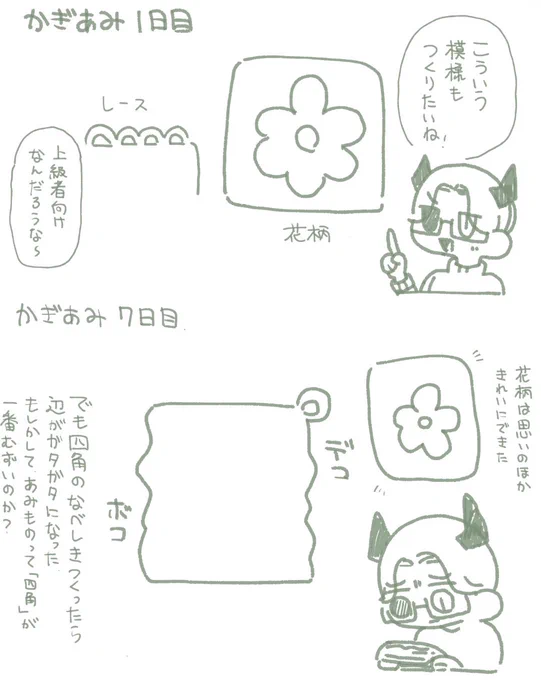 かぎあみ1日目
こういう
模様も
つくりたいね!
レース
上級者向け
なんだろうな〜
花柄
かぎあみ7日目
花柄は思いのほか
きれいにできた
デコ
ボコ
でも四角のなべしきつくったら
辺ががタがタになった
もしかして、あみものって「四角」が
一番むずいのか?